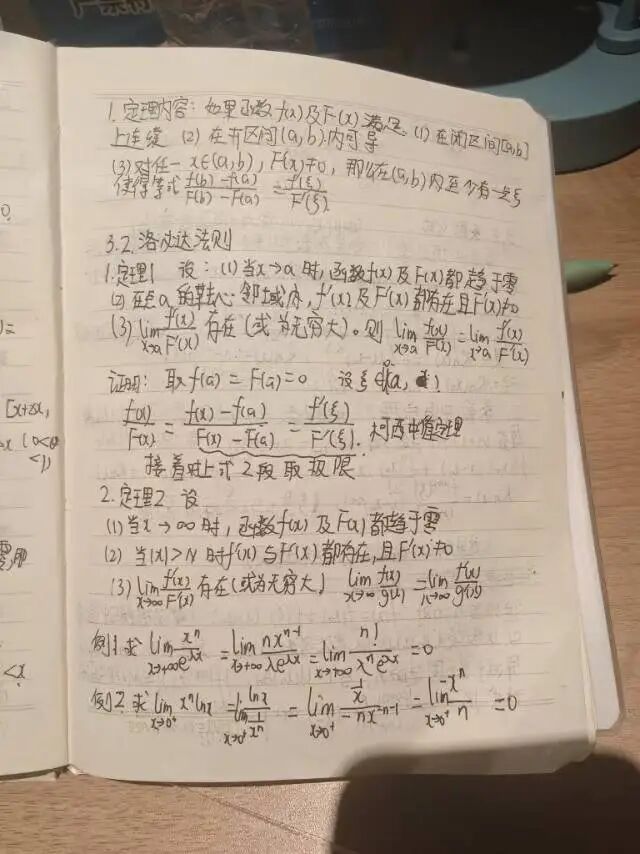 1. 定理内容: 如果函数 f(x) 及 F(x) 满足 (1) 在闭区间[a,b]
上连续 (2) 在开区间(a,b)内可导
(3) 对任一 x∈(a,b), F'(x)≠0, 那么在(a,b)内至少有一点ξ
使得等式 (f(b)-f(a))/(F(b)-F(a)) = f'(ξ)/F'(ξ)
3.2. 洛必达法则
1. 定理1 设: (1) 当x→a 时, 函数f(x)及F(x)都趋于零
(2) 在点a的去心邻域内, f'(x)及F'(x)都存在且F'(x)≠0
(3) lim x→a f'(x)/F'(x) 存在 (或为无穷大)。则 lim x→a f(x)/F(x) = lim x→a f'(x)/F'(x)
证明: 取 f(a) = F(a) = 0 设ξ
f(x)/F(x) = (f(x)-f(a))/(F(x)-F(a)) = f'(ξ)/F'(ξ). 柯西中值定理
接着对上式2段取极限
2. 定理2 设
(1) 当x→∞时, 函数f(x)及F(x)都趋于零
(2) 当|x|>N时f'(x)与F'(x)都存在, 且F'(x)≠0
(3) lim x→∞ f'(x)/F'(x) 存在(或为无穷大) lim x→∞ f(x)/g(x) = lim x→∞ f'(x)/g'(x)
例1. 求 lim x→+∞ x^n/e^λx = lim x→+∞ nx^(n-1)/λe^λx = lim x→+∞ n!/λ^n e^λx = 0
例2. 求 lim x→0+ x^n lnx = lim x→0+ lnx/(1/x^n) = lim x→0+ (1/x)/(-nx^(-n-1)) = lim x→0+ -x^n/n = 0